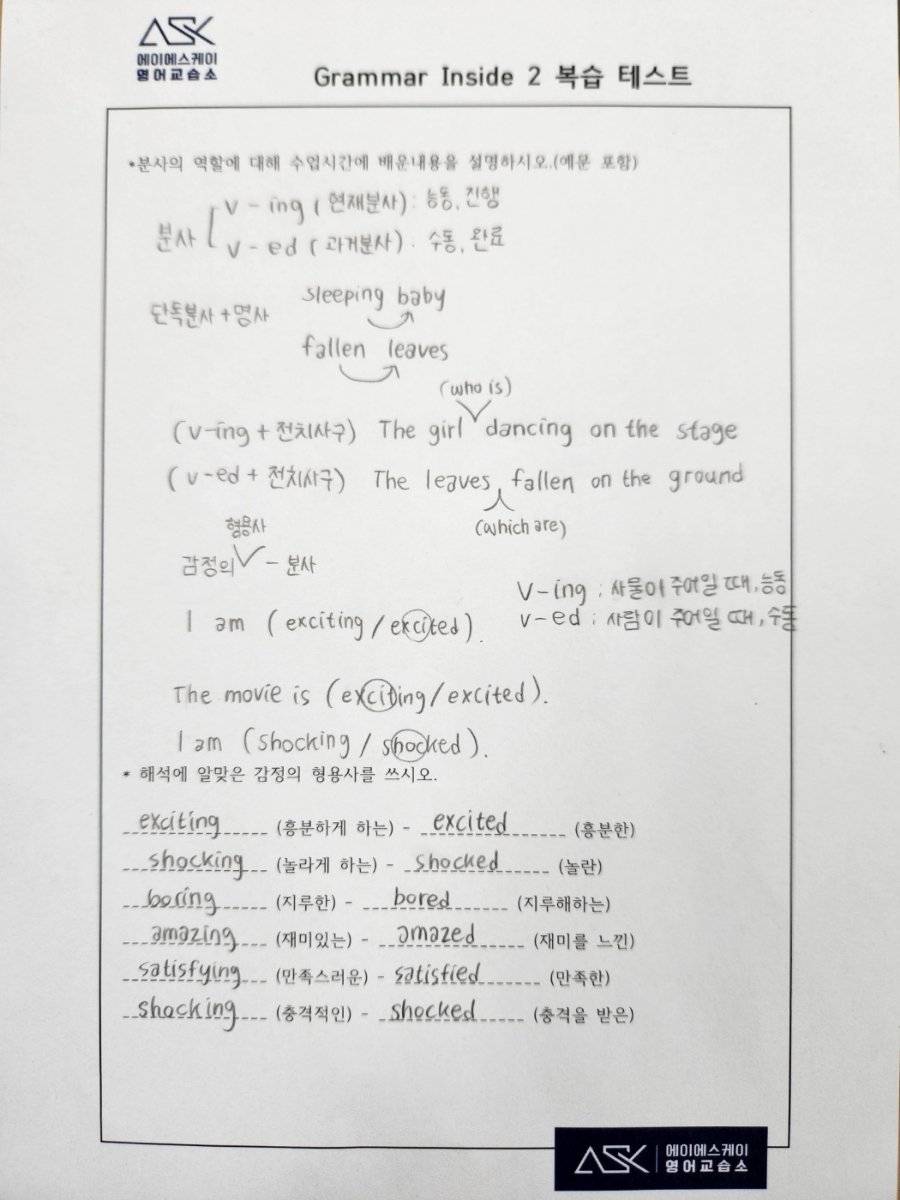 ASK
에이에스케이
영어교습소
Grammar Inside 2 복습 테스트
*분사의 역할에 대해 수업시간에 배운내용을 설명하시오.(예문 포함)
분사
v - ing ( 현재분사) : 능동, 진행
v - ed ( 과거분사) : 수동, 완료
단독분사 + 명사
sleeping baby
fallen leaves
(who is)
(v-ing + 전치사구) The girl dancing on the stage
(v-ed + 전치사구) The leaves fallen on the ground
(which are)
형용사
감정의 - 분사
v-ing ; 사물이 주어일 때, 능동
v-ed ; 사람이 주어일 때, 수동
I am (exciting / excited).
The movie is (exciting/excited).
I am (shocking / shocked).
* 해석에 알맞은 감정의 형용사를 쓰시오.
exciting (흥분하게 하는) - excited (흥분한)
shocking (놀라게 하는) - shocked (놀란)
boring (지루한) - bored (지루해하는)
amazing (재미있는) - amazed (재미를 느낀)
satisfying (만족스러운) - satisfied (만족한)
shocking (충격적인) - shocked (충격을 받은)
ASK
에이에스케이
영어교습소